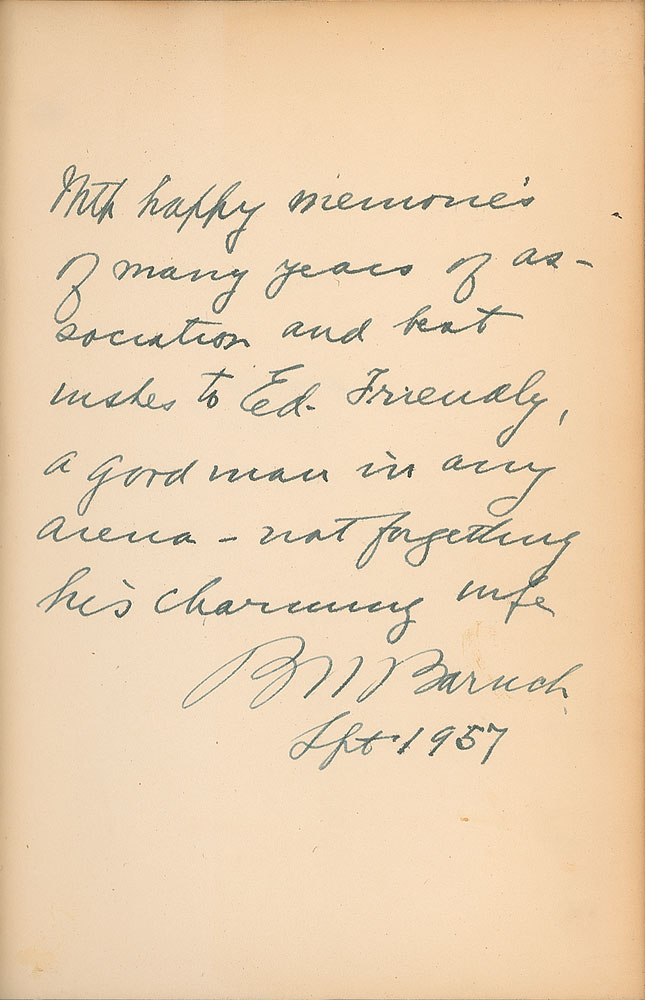 With happy memories
of many years of as-
sociation and best
wishes to Ed. Friendly,
a good man in any
arena - not forgetting
his charming wife
B M Baruch
Spt 1957